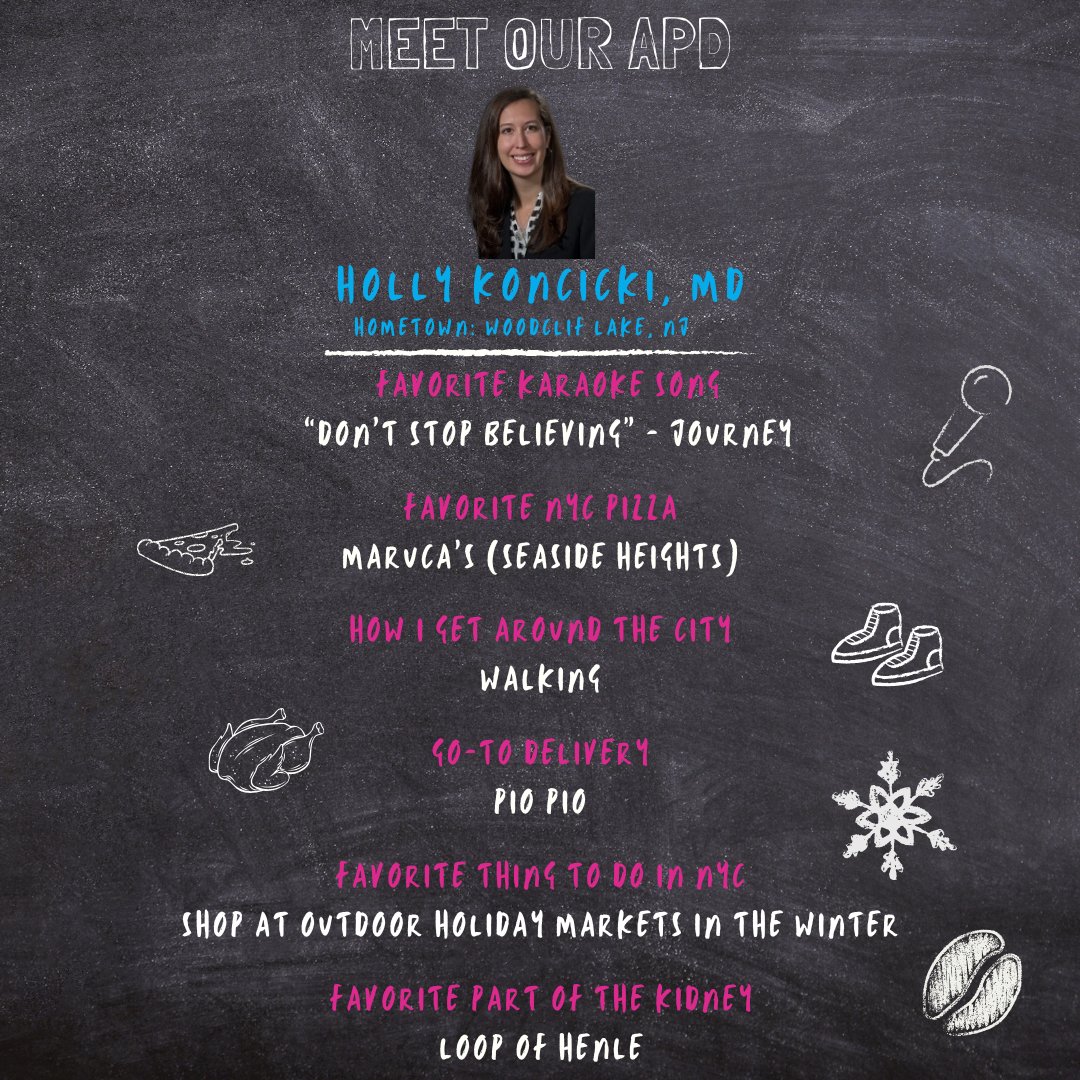 MEET OUR APD
HOLLY KONCICKI, MD
HOMETOWN: WOODCLIF LAKE, NJ
FAVORITE KARAOKE SONG
“DON’T STOP BELIEVING” - JOURNEY
FAVORITE NYC PIZZA
MARUCA’S (SEASIDE HEIGHTS)
HOW I GET AROUND THE CITY
WALKING
GO-TO DELIVERY
PIO PIO
FAVORITE THING TO DO IN NYC
SHOP AT OUTDOOR HOLIDAY MARKETS IN THE WINTER
FAVORITE PART OF THE KIDNEY
LOOP OF HENLE